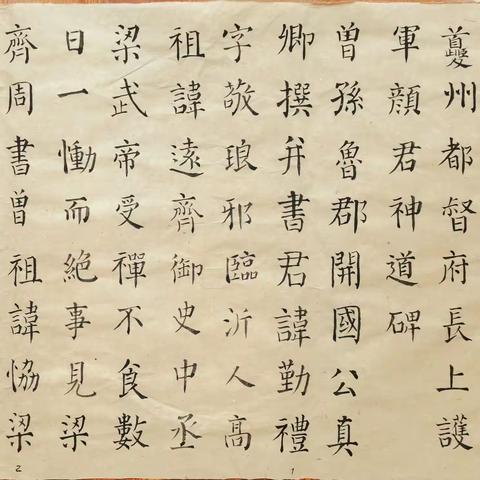 夔州都督府長上護
軍顏君神道碑
曾孫魯郡開國公真
卿撰并書君諱勤禮
字敬琅邪臨沂人高
祖諱遠齊御史中丞
梁武帝受禪不食數
日一慟而絕事見梁
齊周書曾祖諱恊梁
1
2